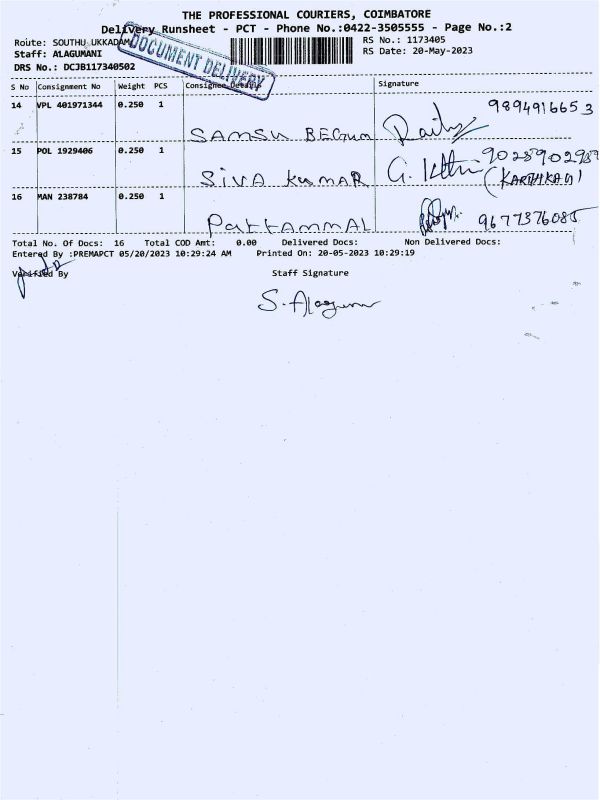 THE PROFESSIONAL COURIERS, COIMBATORE
Delivery Runsheet - PCT - Phone No.:0422-3505555 - Page No.:2
Route: SOUTHU UKKADAM
RS No.: 1173405
Staff: ALAGUMANI
RS Date: 20-May-2023
DOCUMENT DELIVERY
DRS No.: DCJB117340502
S No Consignment No Weight PCS Consignee Details Signature
14 VPL 401971344 0.250 1
9894916653
SAMSU BEGUM
15 POL 1929406 0.250 1
9028902989
SIVA KUMAR G.
(KARTHIKA G)
16 MAN 238784 0.250 1
PATTAMMAL 9677376085
Total No. Of Docs: 16 Total COD Amt: 0.00 Delivered Docs: Non Delivered Docs:
Entered By :PREMAPCT 05/20/2023 10:29:24 AM Printed On: 20-05-2023 10:29:19
Verified By Staff Signature